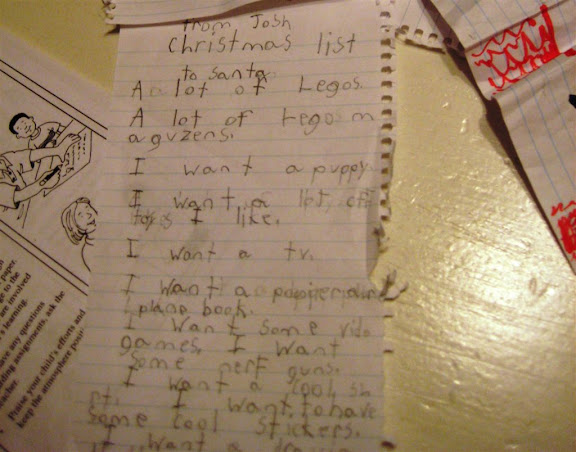 from Josh
christmas list
to santa
A lot of Legos.
A lot of Legos m
aguzens.
I want a puppy.
I want a lot off
toys I like.
I want a tv.
I want a
plane book.
I want some vido
games. I want
some nerf guns.
I want a cool sh
rt. I want to have
some cool stickers.
I want a
paper.
ge to the
are involved
's learning.
ave any questions
nding assignments, ask the
teacher.
Praise your child's efforts and
keep the atmosphere posit